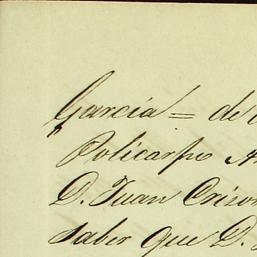 Garcia = de
Policarpo
D. Juan
saber que D.